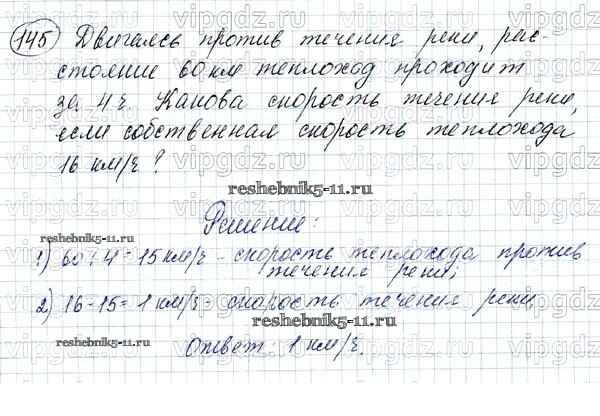 145 Двигаясь против течения реки, рас-
стояние 60 км теплоход проходит
за 4 ч. Какова скорость течения реки,
если собственная скорость теплохода
16 км/ч?
reshebnik5-11.ru
Решение:
1) 60 : 4 = 15 км/ч - скорость теплохода против
reshebnik5-11.ru
течения реки;
2) 16 - 15 = 1 км/ч - скорость течения реки
reshebnik5-11.ru
reshebnik5-11.ru
Ответ: 1 км/ч.
vipgdz.ru